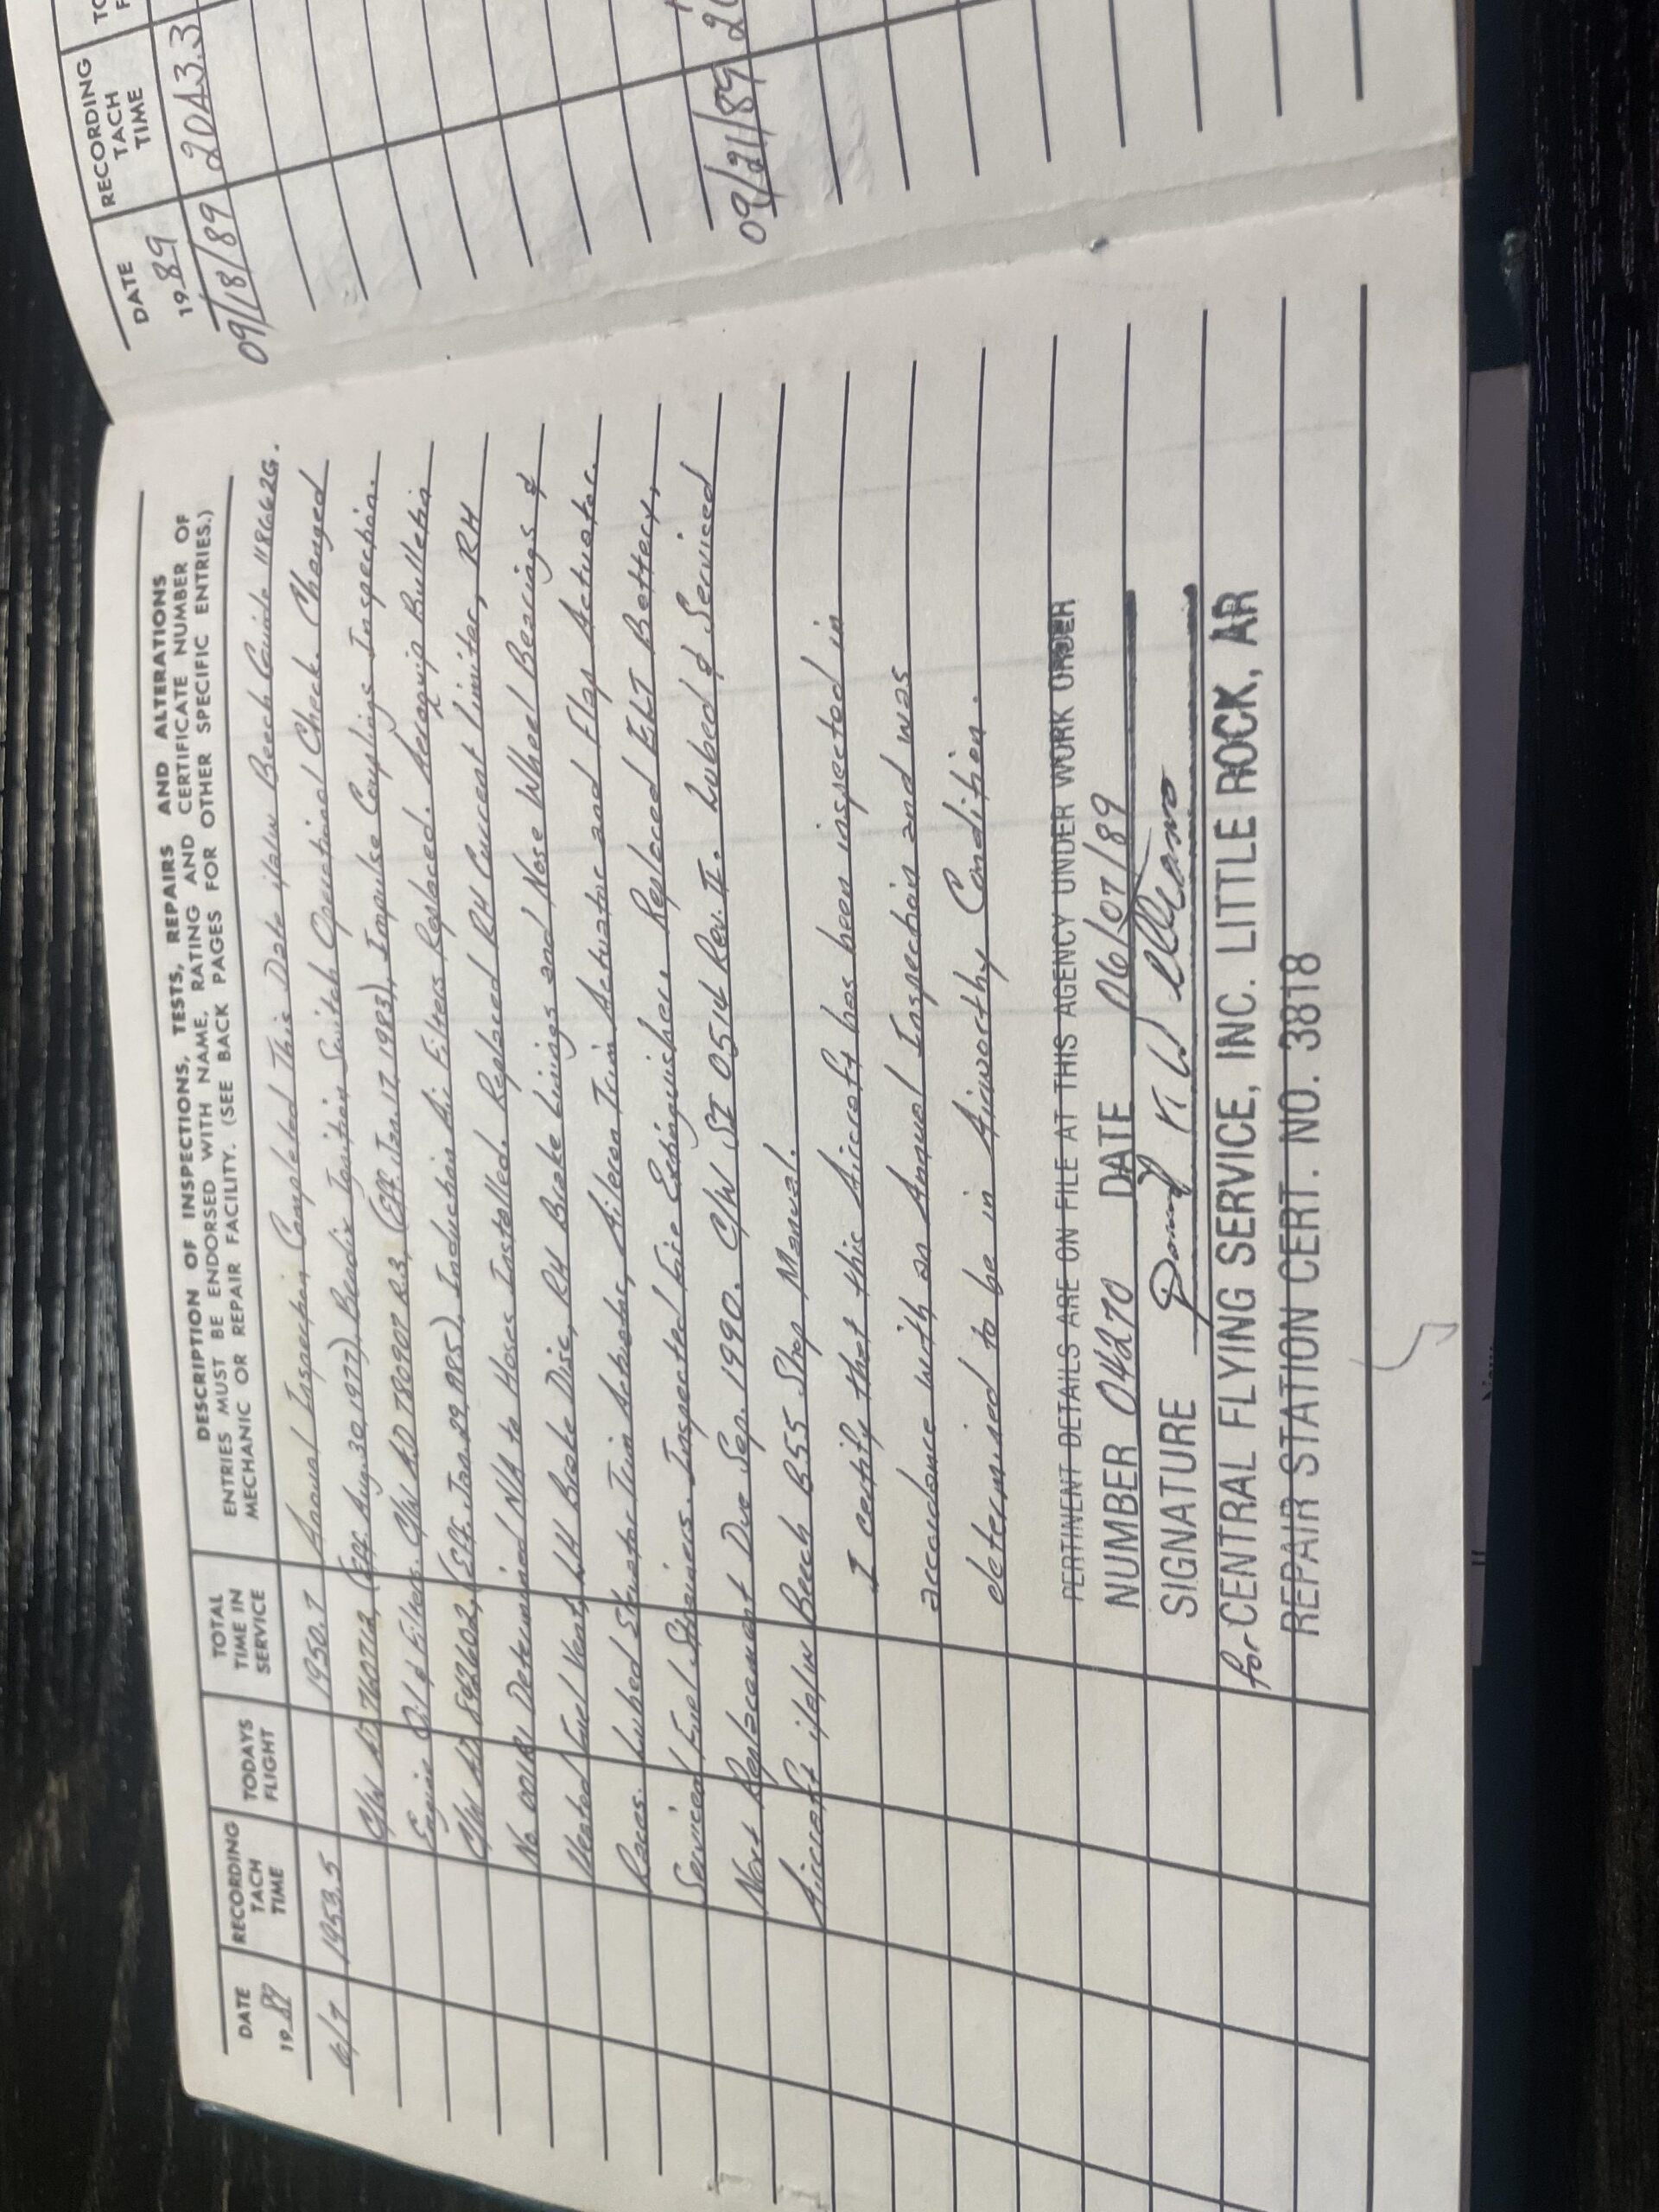 DESCRIPTION OF INSPECTIONS, TESTS, REPAIRS AND ALTERATIONS
ENTRIES MUST BE ENDORSED WITH NAME, RATING AND CERTIFICATE NUMBER OF
MECHANIC OR REPAIR FACILITY. (SEE BACK PAGES FOR OTHER SPECIFIC ENTRIES.)
DATE
19 89
RECORDING
TACH
TIME
TODAYS
FLIGHT
TOTAL
TIME IN
SERVICE
6/7 1953.5 1950.7 Annual Inspection Completed This Date i/a/w Beech Guide 118662G.
C/W AD 760712, (Eff. Aug. 30, 1977), Bendix Ignition Switch Operational Check. Changed
Engine Oil & Filters. C/W AD 780907 R.3, (Eff. Jan. 17, 1983), Impulse Couplings Inspection.
C/W AD 842602, (Eff. Jan. 29, 1985), Induction Air Filters Replaced. Aeroquip Bulletin
No 001R Determined N/A to Hoses Installed. Replaced RH Current Limiter, RH
Heated Fuel Vent, LH Brake Disc, RH Brake Linings and Nose Wheel Bearings &
Races. Lubed Trim Actuator, Aileron Trim Actuator and Flap Actuator.
Serviced Fuel Strainers. Inspected Fire Extinguisher. Replaced ELT Battery,
Next Replacement Due Sep. 1990. C/W SI 0514 Rev. II. Lubed & Serviced
Aircraft i/a/w Beech B55 Shop Manual.
I certify that this Aircraft has been inspected in
accordance with an Annual Inspection and was
determined to be in Airworthy Condition.
PERTINENT DETAILS ARE ON FILE AT THIS AGENCY UNDER WORK ORDER
NUMBER 04270 DATE 06/07/89
SIGNATURE
for CENTRAL FLYING SERVICE, INC. LITTLE ROCK, AR
REPAIR STATION CERT. NO. 3818
DATE
19 89
RECORDING
TACH
TIME
09/18/89 2043.3
09/21/89